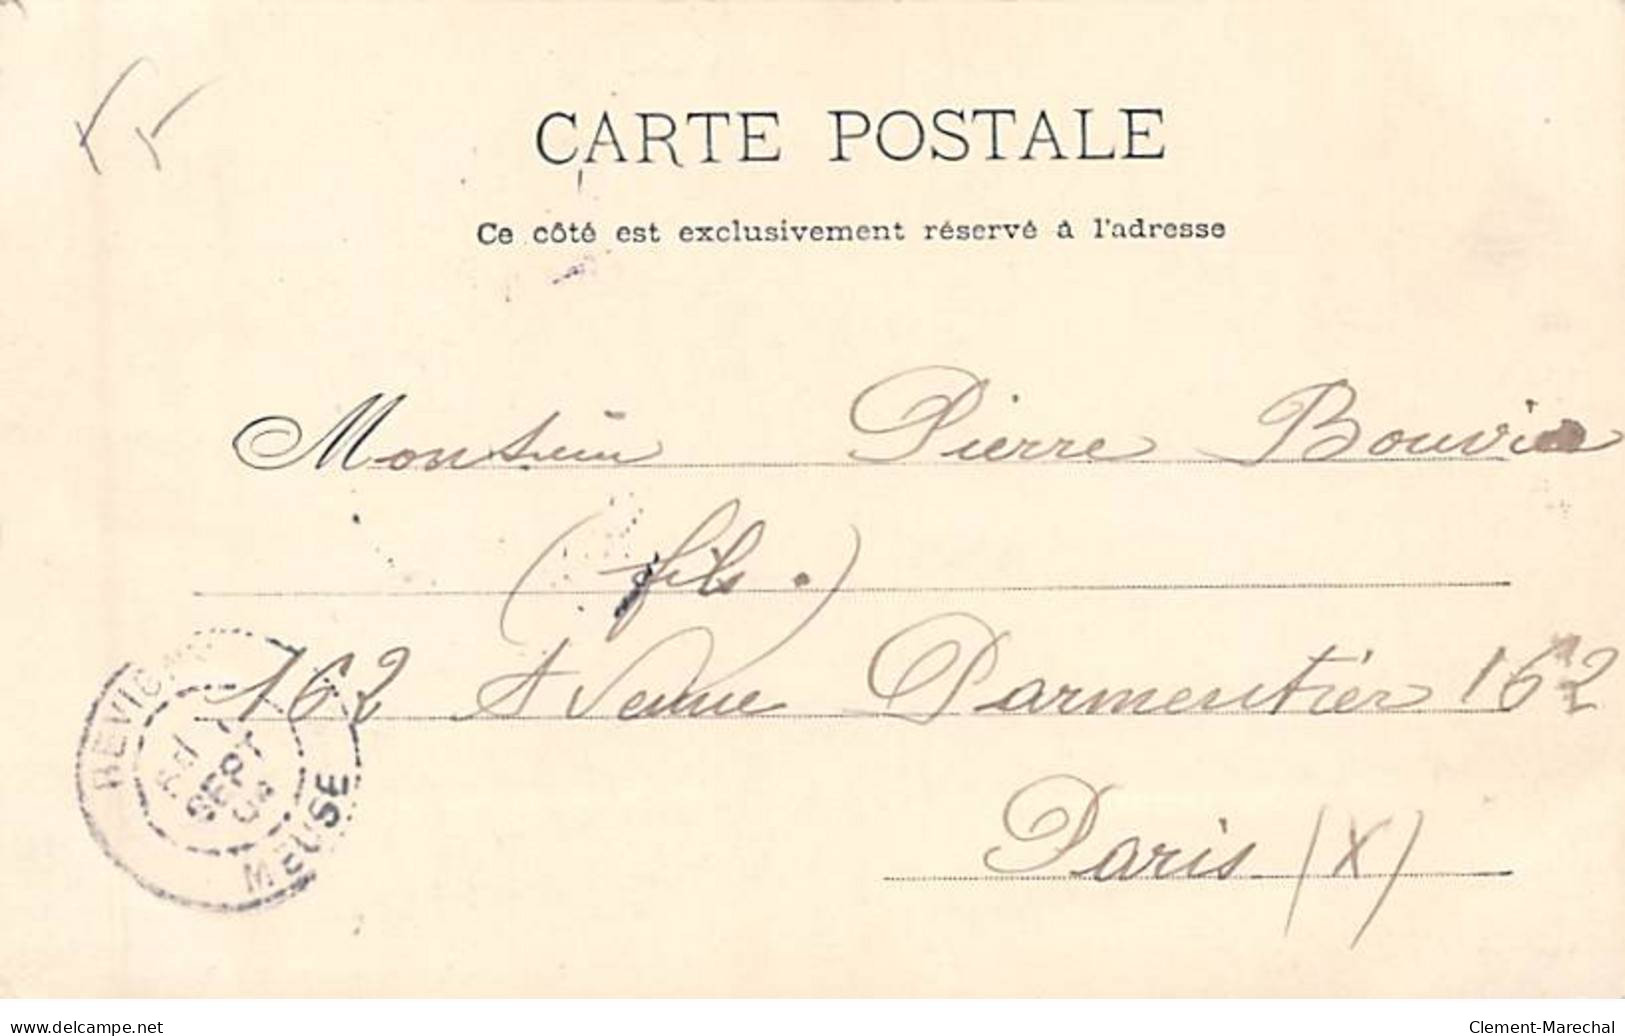 CARTE POSTALE
Ce côté est exclusivement réservé à l'adresse
Monsieur Pierre
(fils.)
162 Avenue Parmentier 162
Paris (X)
SEPT
MEUSE
www.delcampe.net
Clement-Marechal